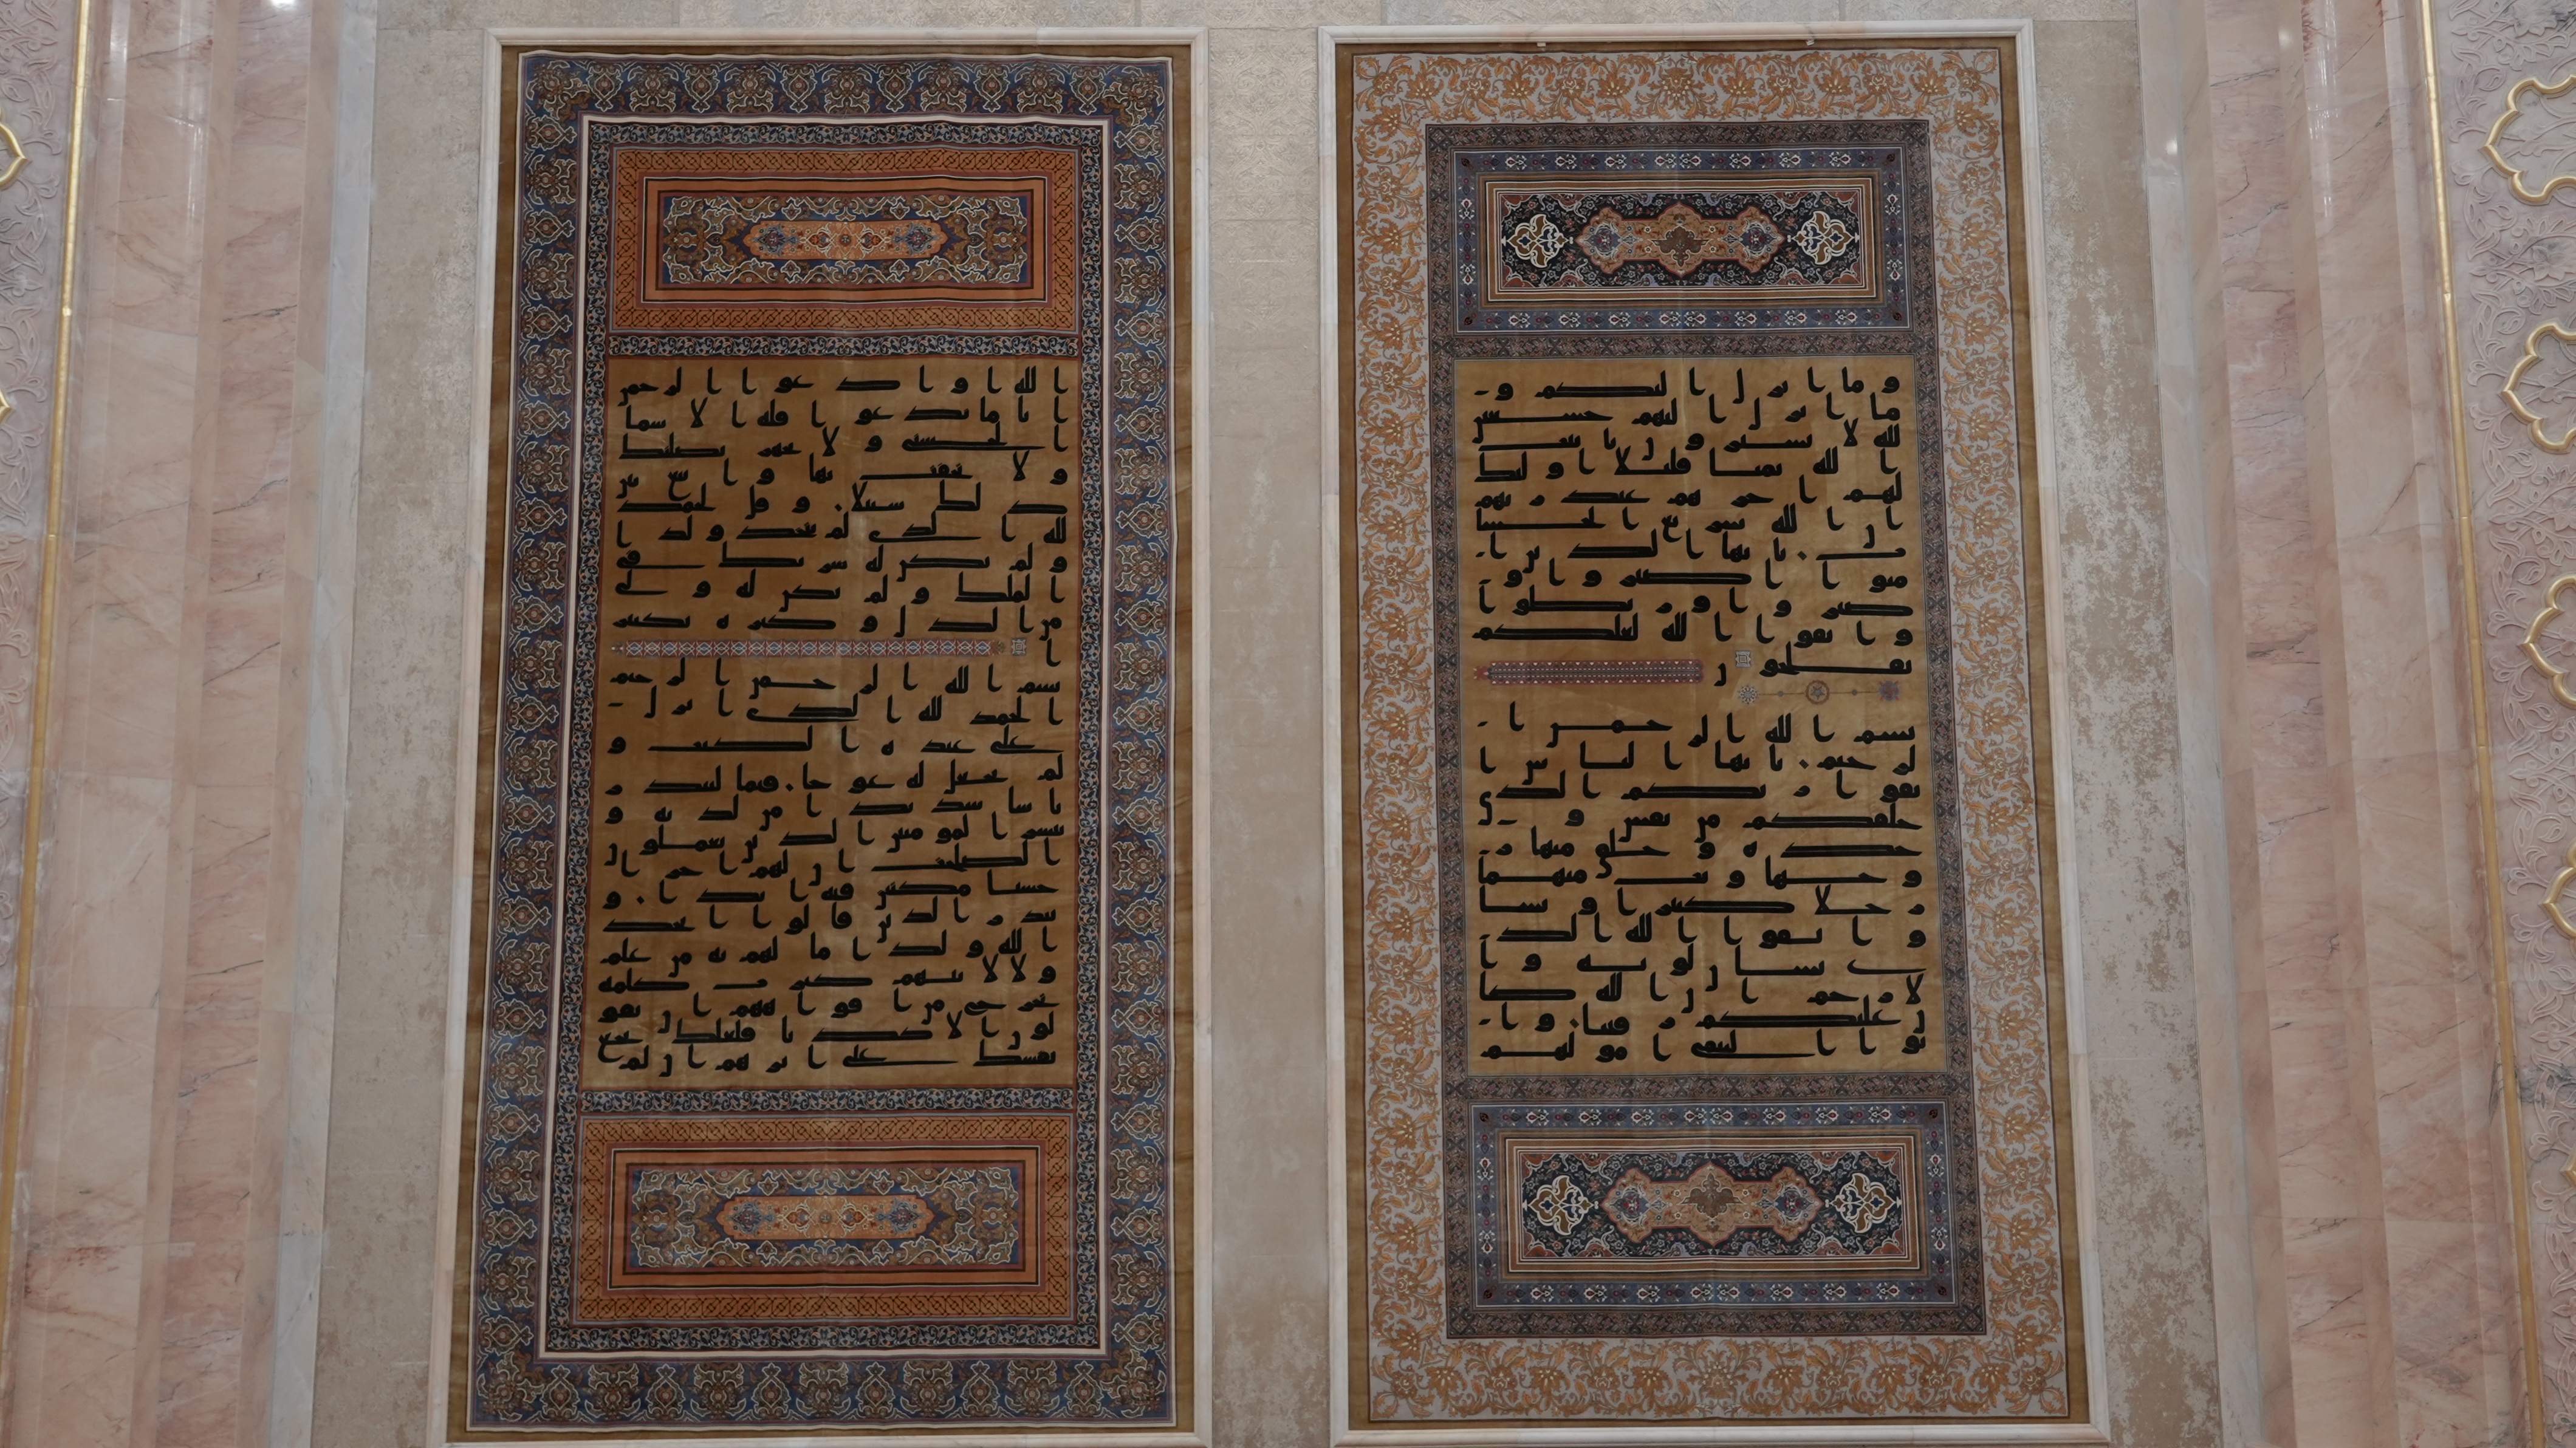 وما انزل اليكم و
ما انزل اليهم خشعين
لله لا يشترون بايت
الله ثمنا قليلا اوليك
لهم اجرهم عند ربهم
ان الله سريع الحسا
ب يايها الذين ا
منوا اصبروا و
صبروا ورابطوا
واتقوا الله لعلكم
تفلحون
بسم الله الرحمن ا
لرحيم يايها الناس ا
تقوا ربكم الذي
خلقكم من نفس و
حدة وخلق منها ز
وجها وبث منهما
رجالا كثيرا ونسا
واتقوا الله الذ
ي تسالون به وا
لارحام ان الله كا
ن عليكم رقيبا وا
توا اليتمى امولهم
الله او ادعوا الرحمن
ايا ما تدعوا فله الاسما
الحسنى ولا تجهر بصلتك
ولا تخفت بها وابتغ بين
ذلك سبيلا وقل الحمد
لله الذي لم يتخذ ولدا
ولم يكن له شريك في
الملك ولم يكن له ولي
من الذل وكبره تكبير
ا
بسم الله الرحمن الرحيم
الحمد لله الذي انزل
على عبده الكتب و
لم يجعل له عوجا قيما لينذر
باسا شديدا من لدنه و
يبشر المومنين الذين يعملون
الصلحت ان لهم اجرا
حسنا مكثين فيه ابدا و
ينذر الذين قالوا اتخذ
الله ولدا ما لهم به من علم
ولا لابيهم كبرت كلمة
تخرج من افوههم ان يقو
لون الا كذبا فلعلك بخع
نفسك على اثرهم ان لم